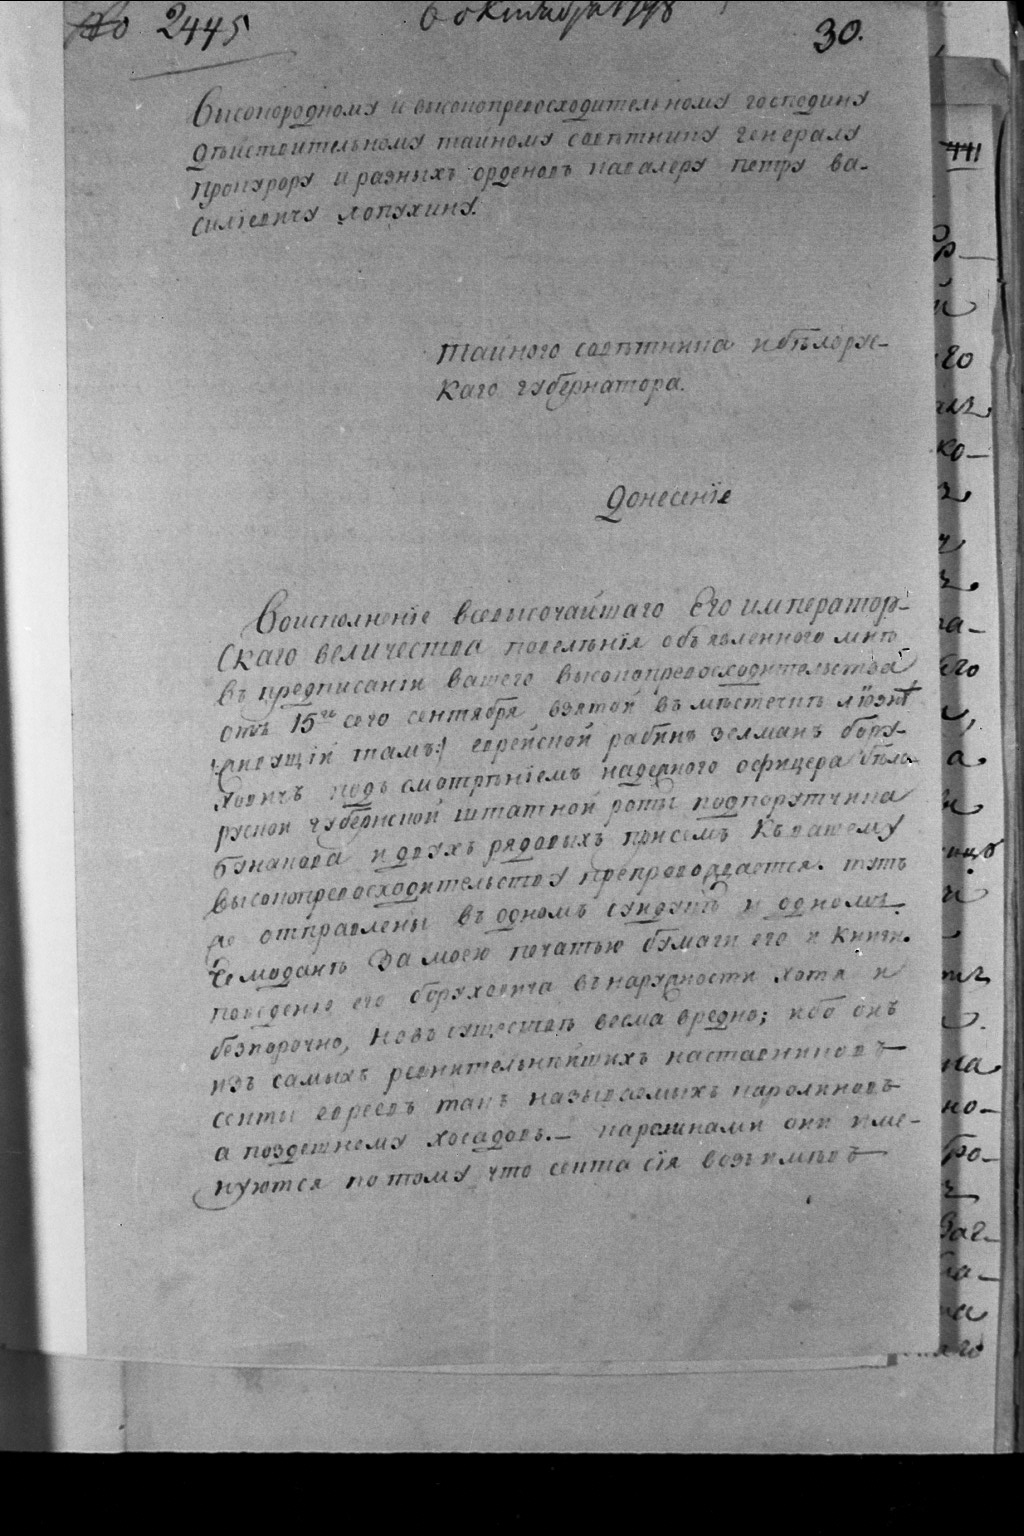 № 2445
6 октября 1798
30.
Высокородному и высокопревосходительному господину
дѣйствительному тайному совѣтнику генералу
прокурору и разныхъ орденовъ кавалеру петру ва-
силіевичу лопухину.
Тайного совѣтника и бѣлорус-
каго губернатора.
Донесеніе
Воисполненіе всевысочайшаго Его император-
скаго величества повелѣнія объявленного мнѣ
въ предписаніи вашего высокопревосходительства
отъ 15го сего сентября взятой въ мѣстечкѣ лїознѣ
живущій тамъ еврейской рабинъ зелманъ бору-
ховичъ подъ смотрѣніемъ надежного офицера бѣло-
руской губернской штатной роты подпорутчика
букакова и двухъ рядовыхъ присемъ къ вашему
высокопревосходительству препровождается. тутъ
же отправлены въ одномъ сундукѣ и одномъ
чемоданѣ за моею печатью бумаги его и книги.
поведеніе его боруховича въ наружности хотя и
безпорочно, но въ существѣ весма вредно; ибо онъ
изъ самыхъ ревнительнѣйшихъ наставниковъ
секты евреевъ такъ называемыхъ каролиновъ
а поздешнему хосадовъ.— каролинами они име-
нуются по тому что секта сія возъимѣвъ
441
го
ко-
на-
его
а
на
но-
бро-
заг-
на